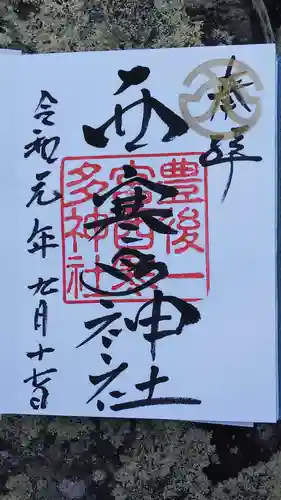 奉拝
西寒多神社
豊後一
宮西寒
多神社
令和元年九月十七日